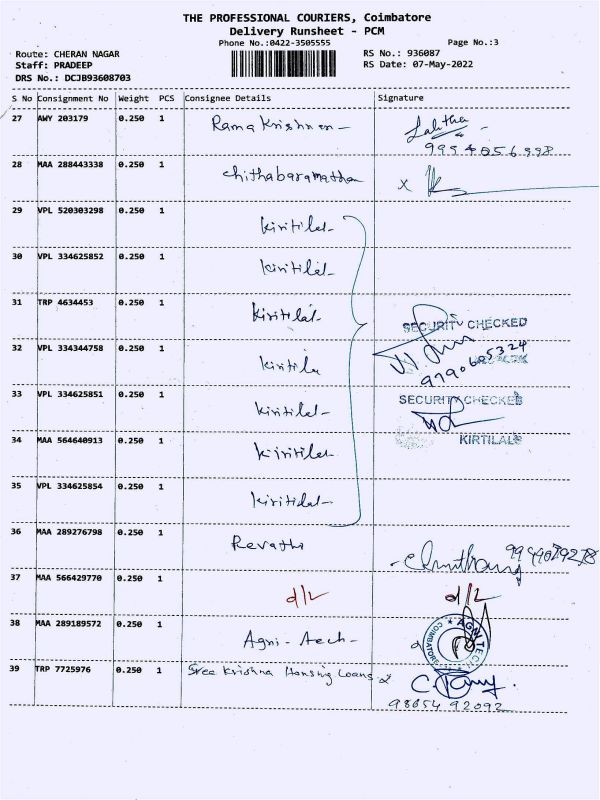 THE PROFESSIONAL COURIERS, Coimbatore
Delivery Runsheet - PCM
Phone No.:0422-3505555
Page No.:3
Route: CHERAN NAGAR
RS No.: 936087
Staff: PRADEEP
RS Date: 07-May-2022
DRS No.: DCJB93608703
S No Consignment No Weight PCS Consignee Details Signature
27 AWY 203179 0.250 1 Rama Krishnan - Lalitha
28 MAA 288443338 0.250 1
29 VPL 520303298 0.250 1 kiritilal-
30 VPL 334625852 0.250 1 kiritilal-
31 TRP 4634453 0.250 1 kiritilal-
SECURITY CHECKED
32 VPL 334344758 0.250 1
9790605324
33 VPL 334625851 0.250 1 kiritilal-
SECURITY CHECKED
34 MAA 564640913 0.250 1 kiritilal-
KIRTILALS
35 VPL 334625854 0.250 1
36 MAA 289276798 0.250 1 Revathi
37 MAA 566429770 0.250 1 d/L d/L
38 MAA 289189572 0.250 1 Agni-tech-
AGNI TECH
COIMBATORE
39 TRP 7725976 0.250 1 Sree Krishna Housing Loans
98654 92092